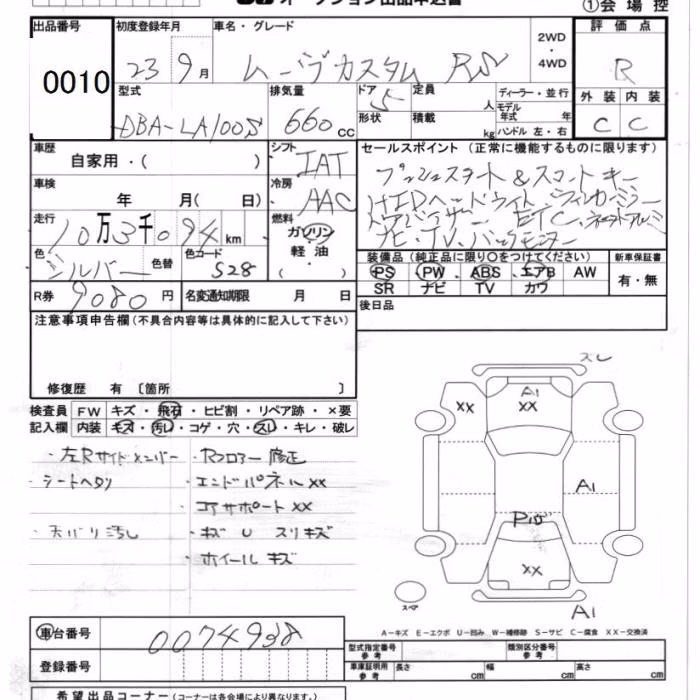 ①会場控
出品番号 初度登録年月 車名・グレード 2WD・4WD 評価点
0010 23 9月 ムーヴカスタム RS R
型式 排気量 ドア 定員 ディーラー・並行 外装 内装
DBA-LA100S 660cc 5 人 モデル年式 年 C C
形状 積載 kg ハンドル 左・右
車歴 シフト セールスポイント(正常に機能するものに限ります)
自家用・( ) IAT プッシュスタート & スマートキー
車検 冷房 HIDヘッドライト
年 月( 日) AAC ETC
走行 燃料 ナビ・TV・バックモニター
10万3千094km ガソリン
軽油・( )
色 色替 色コード 装備品(純正品に限り○をつけてください) 新車保証書
シルバー S28 PS PW ABS エアB AW 有・無
SR ナビ TV カワ
R券 9080円 名変通知期限 月 日 後日品
注意事項申告欄(不具合内容等は具体的に記入して下さい)
修復歴 有 〔箇所 〕
検査員 FW キズ・飛石・ヒビ割・リペア跡・×要
記入欄 内装 キズ・汚れ・コゲ・穴・スレ・キレ・破レ
・左Rサイドメンバー・Rフロアー 修正
・シートヘタリ ・エンドパネルXX
コアサポートXX
・天バリ汚し ・キズ U スリキズ
・ホイール キズ
スレ
XX A1 XX
A1
P15
XX
スペア A1
A-キズ E-エクボ U-凹み W-補修跡 S-サビ C-腐食 XX-交換済
車台番号 0074938
型式指定番号参考 類別区分番号参考
登録番号 車庫証明用参考 長さ cm 幅 cm 高さ cm
希望出品コーナー(コーナーは各会場により異なります。)